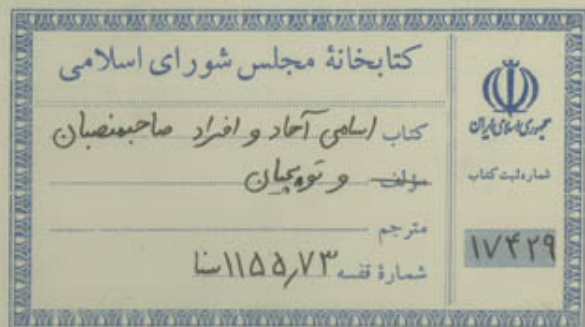 کتابخانهٔ مجلس شورای اسلامی
کتاب اسامی آحاد و افراد صاحبمنصبان
مؤلف و توپچیان
مترجم
شمارهٔ قفسه ۱۱۵۵٫۷۳سنا
جمهوری اسلامی ایران
شماره ثبت کتاب
۱۷۴۲۹